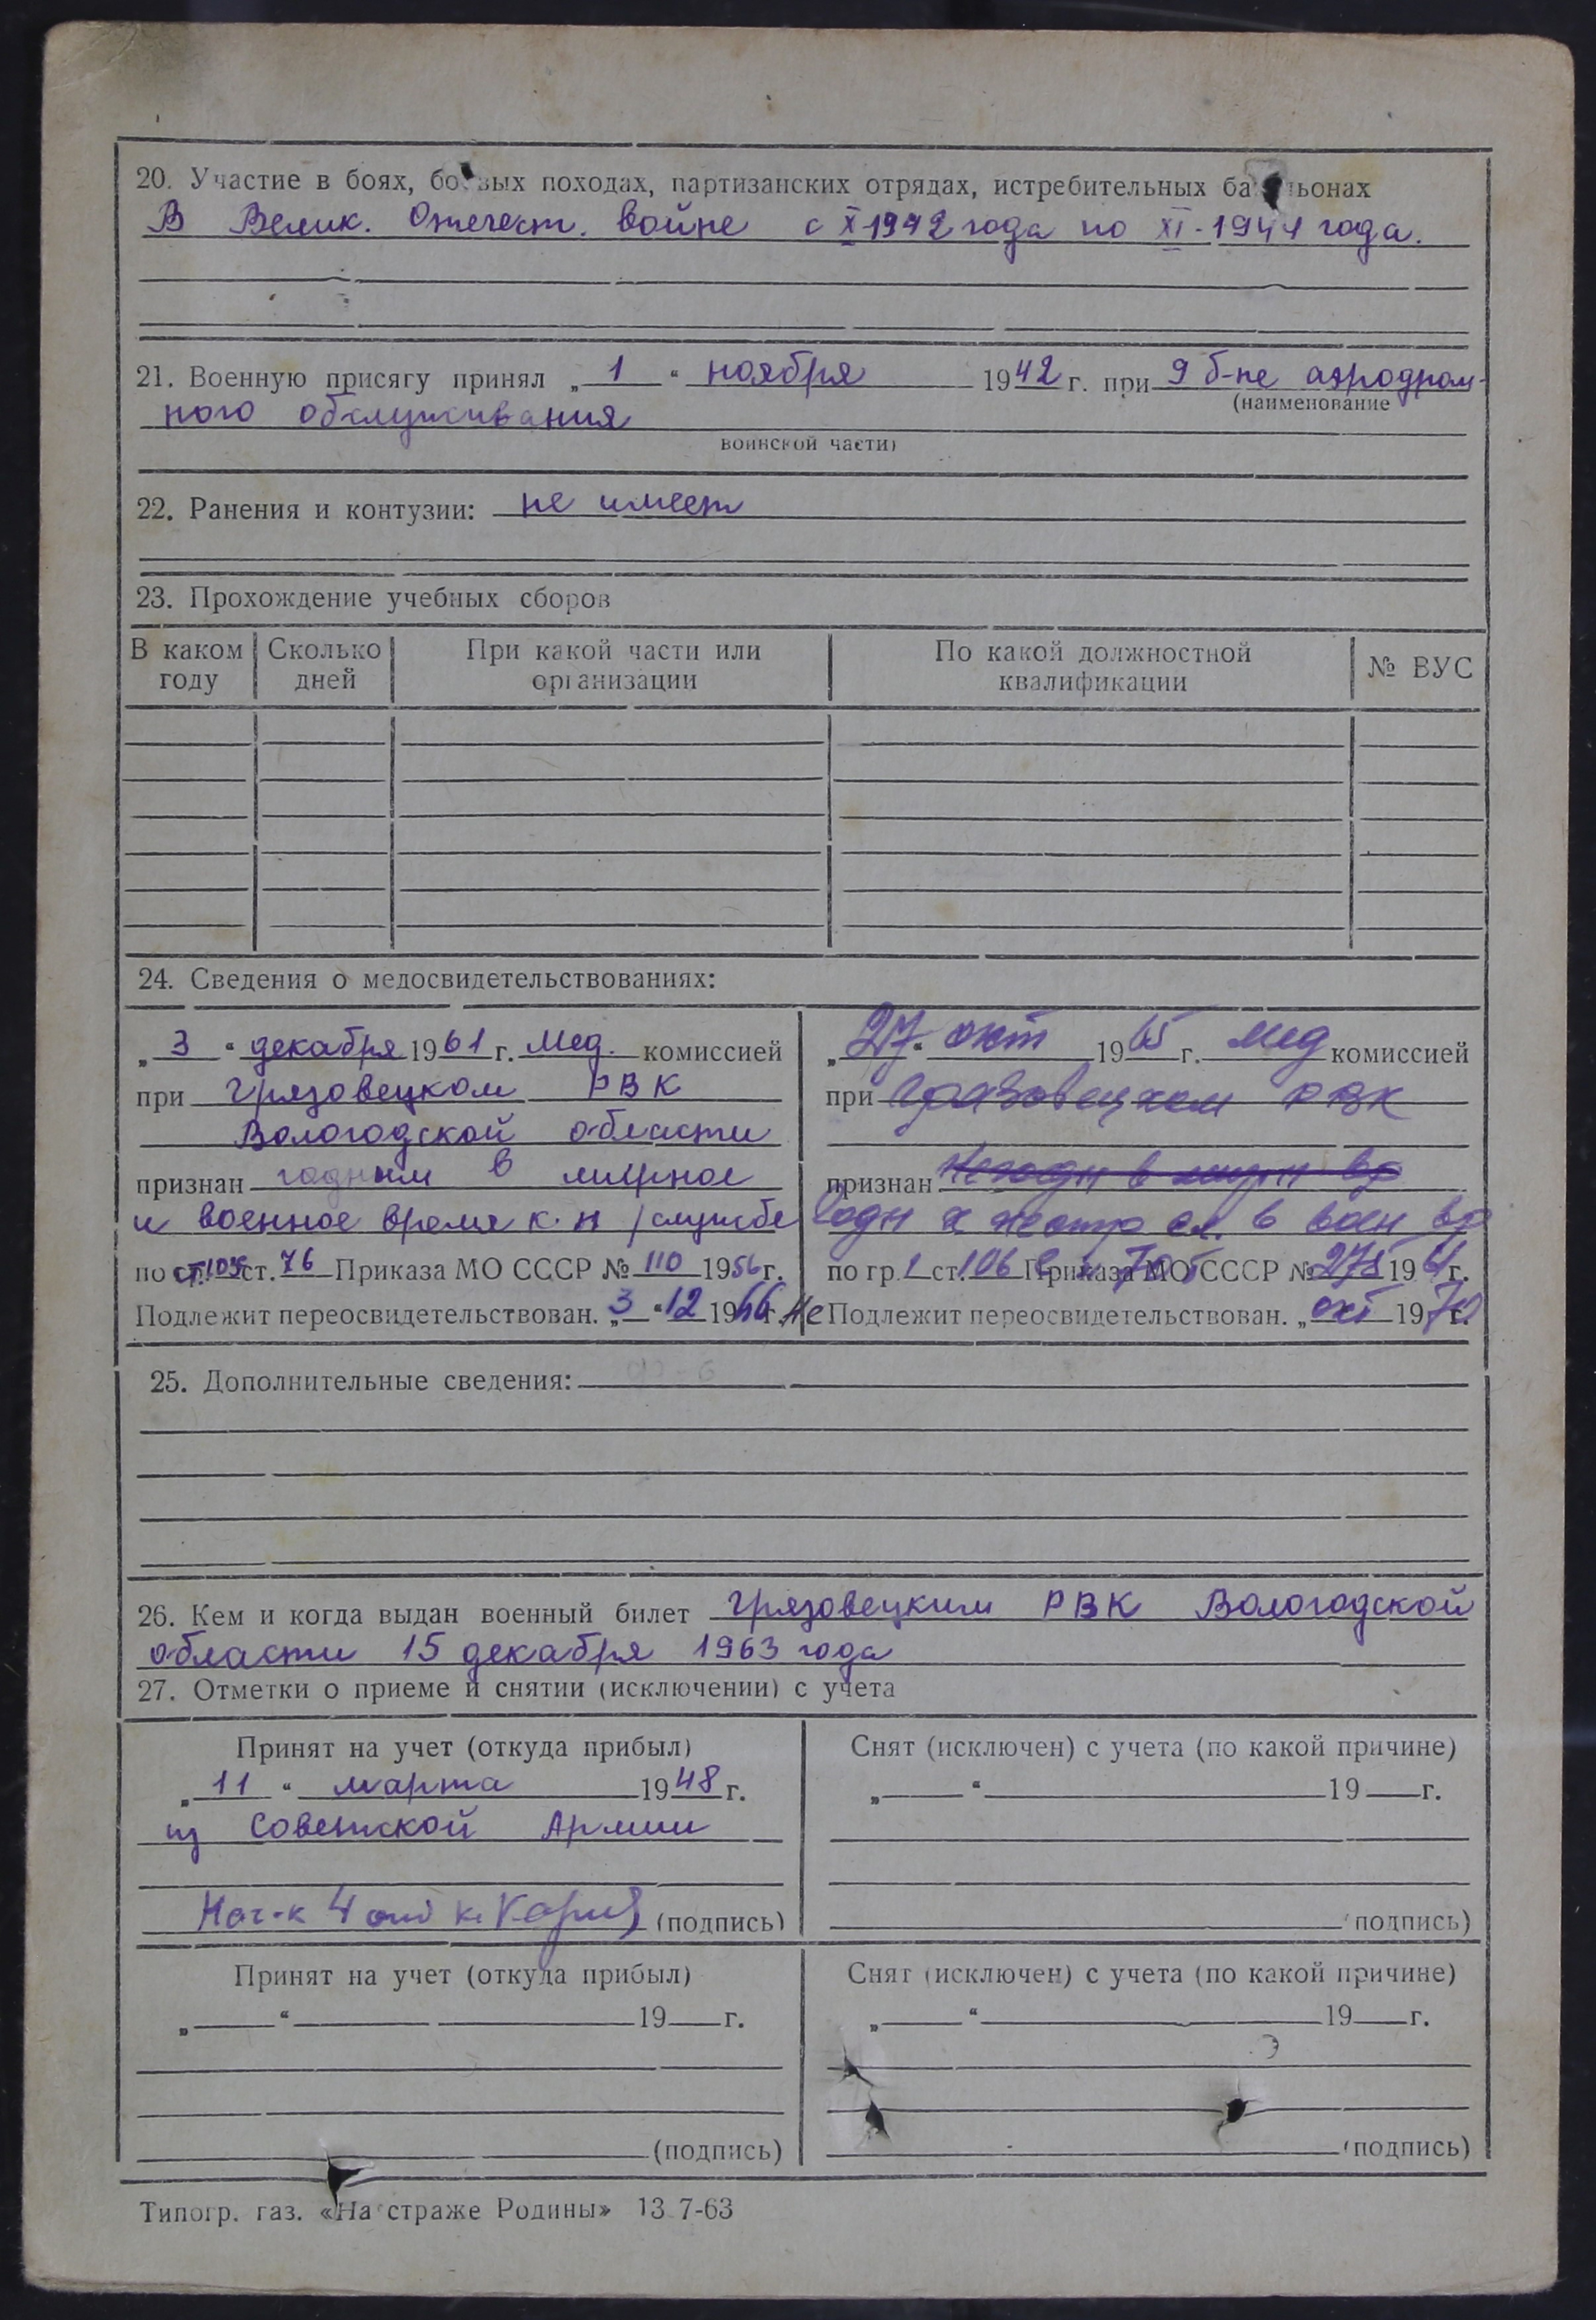 20. Участие в боях, боевых походах, партизанских отрядах, истребительных батальонах
В Велик. Отечест. войне с X 1942 года по XI-1944 года.
21. Военную присягу принял „ 1 “ ноября 1942 г. при 9 б-не аэродром-
(наименование
ного обслуживания
воинской части)
22. Ранения и контузии: не имеет
23. Прохождение учебных сборов
В каком году Сколько дней При какой части или организации По какой должностной квалификации № ВУС
24. Сведения о медосвидетельствованиях:
„ 3 “ декабря 1961 г. Мед. комиссией
при Грязовецком РВК
Вологодской области
признан годным в мирное
и военное время к н/службе
по ст. 76 Приказа МО СССР № 110 1956 г.
Подлежит переосвидетельствован. „ 3 “ 12 1966 г.
„ 27 “ окт 1965 г. мед комиссией
при Грязовецком РВК
признан негодн в мирн вр
Годн к нестр сл. в воен вр
по гр. 1 ст. 106 Приказа МО СССР № 275 196 г.
Не Подлежит переосвидетельствован. „ окт 1970 г.
25. Дополнительные сведения:
26. Кем и когда выдан военный билет Грязовецким РВК Вологодской
области 15 декабря 1963 года
27. Отметки о приеме и снятии (исключении) с учета
Принят на учет (откуда прибыл)
„ 11 “ марта 1948 г.
из Советской Армии
Нач-к 4 (подпись)
Снят (исключен) с учета (по какой причине)
„ “ 19 г.
(подпись)
Принят на учет (откуда прибыл)
„ “ 19 г.
(подпись)
Снят (исключен) с учета (по какой причине)
„ “ 19 г.
(подпись)
Типогр. газ. «На страже Родины» 13 7-63